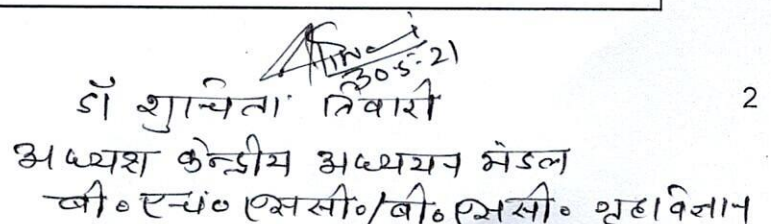 ATiwari
30-5-21
डॉ शुचिता तिवारी
2
अध्यक्ष केन्द्रीय अध्ययन मंडल
बी०एच०एससी०/बी०एससी० गृहविज्ञान